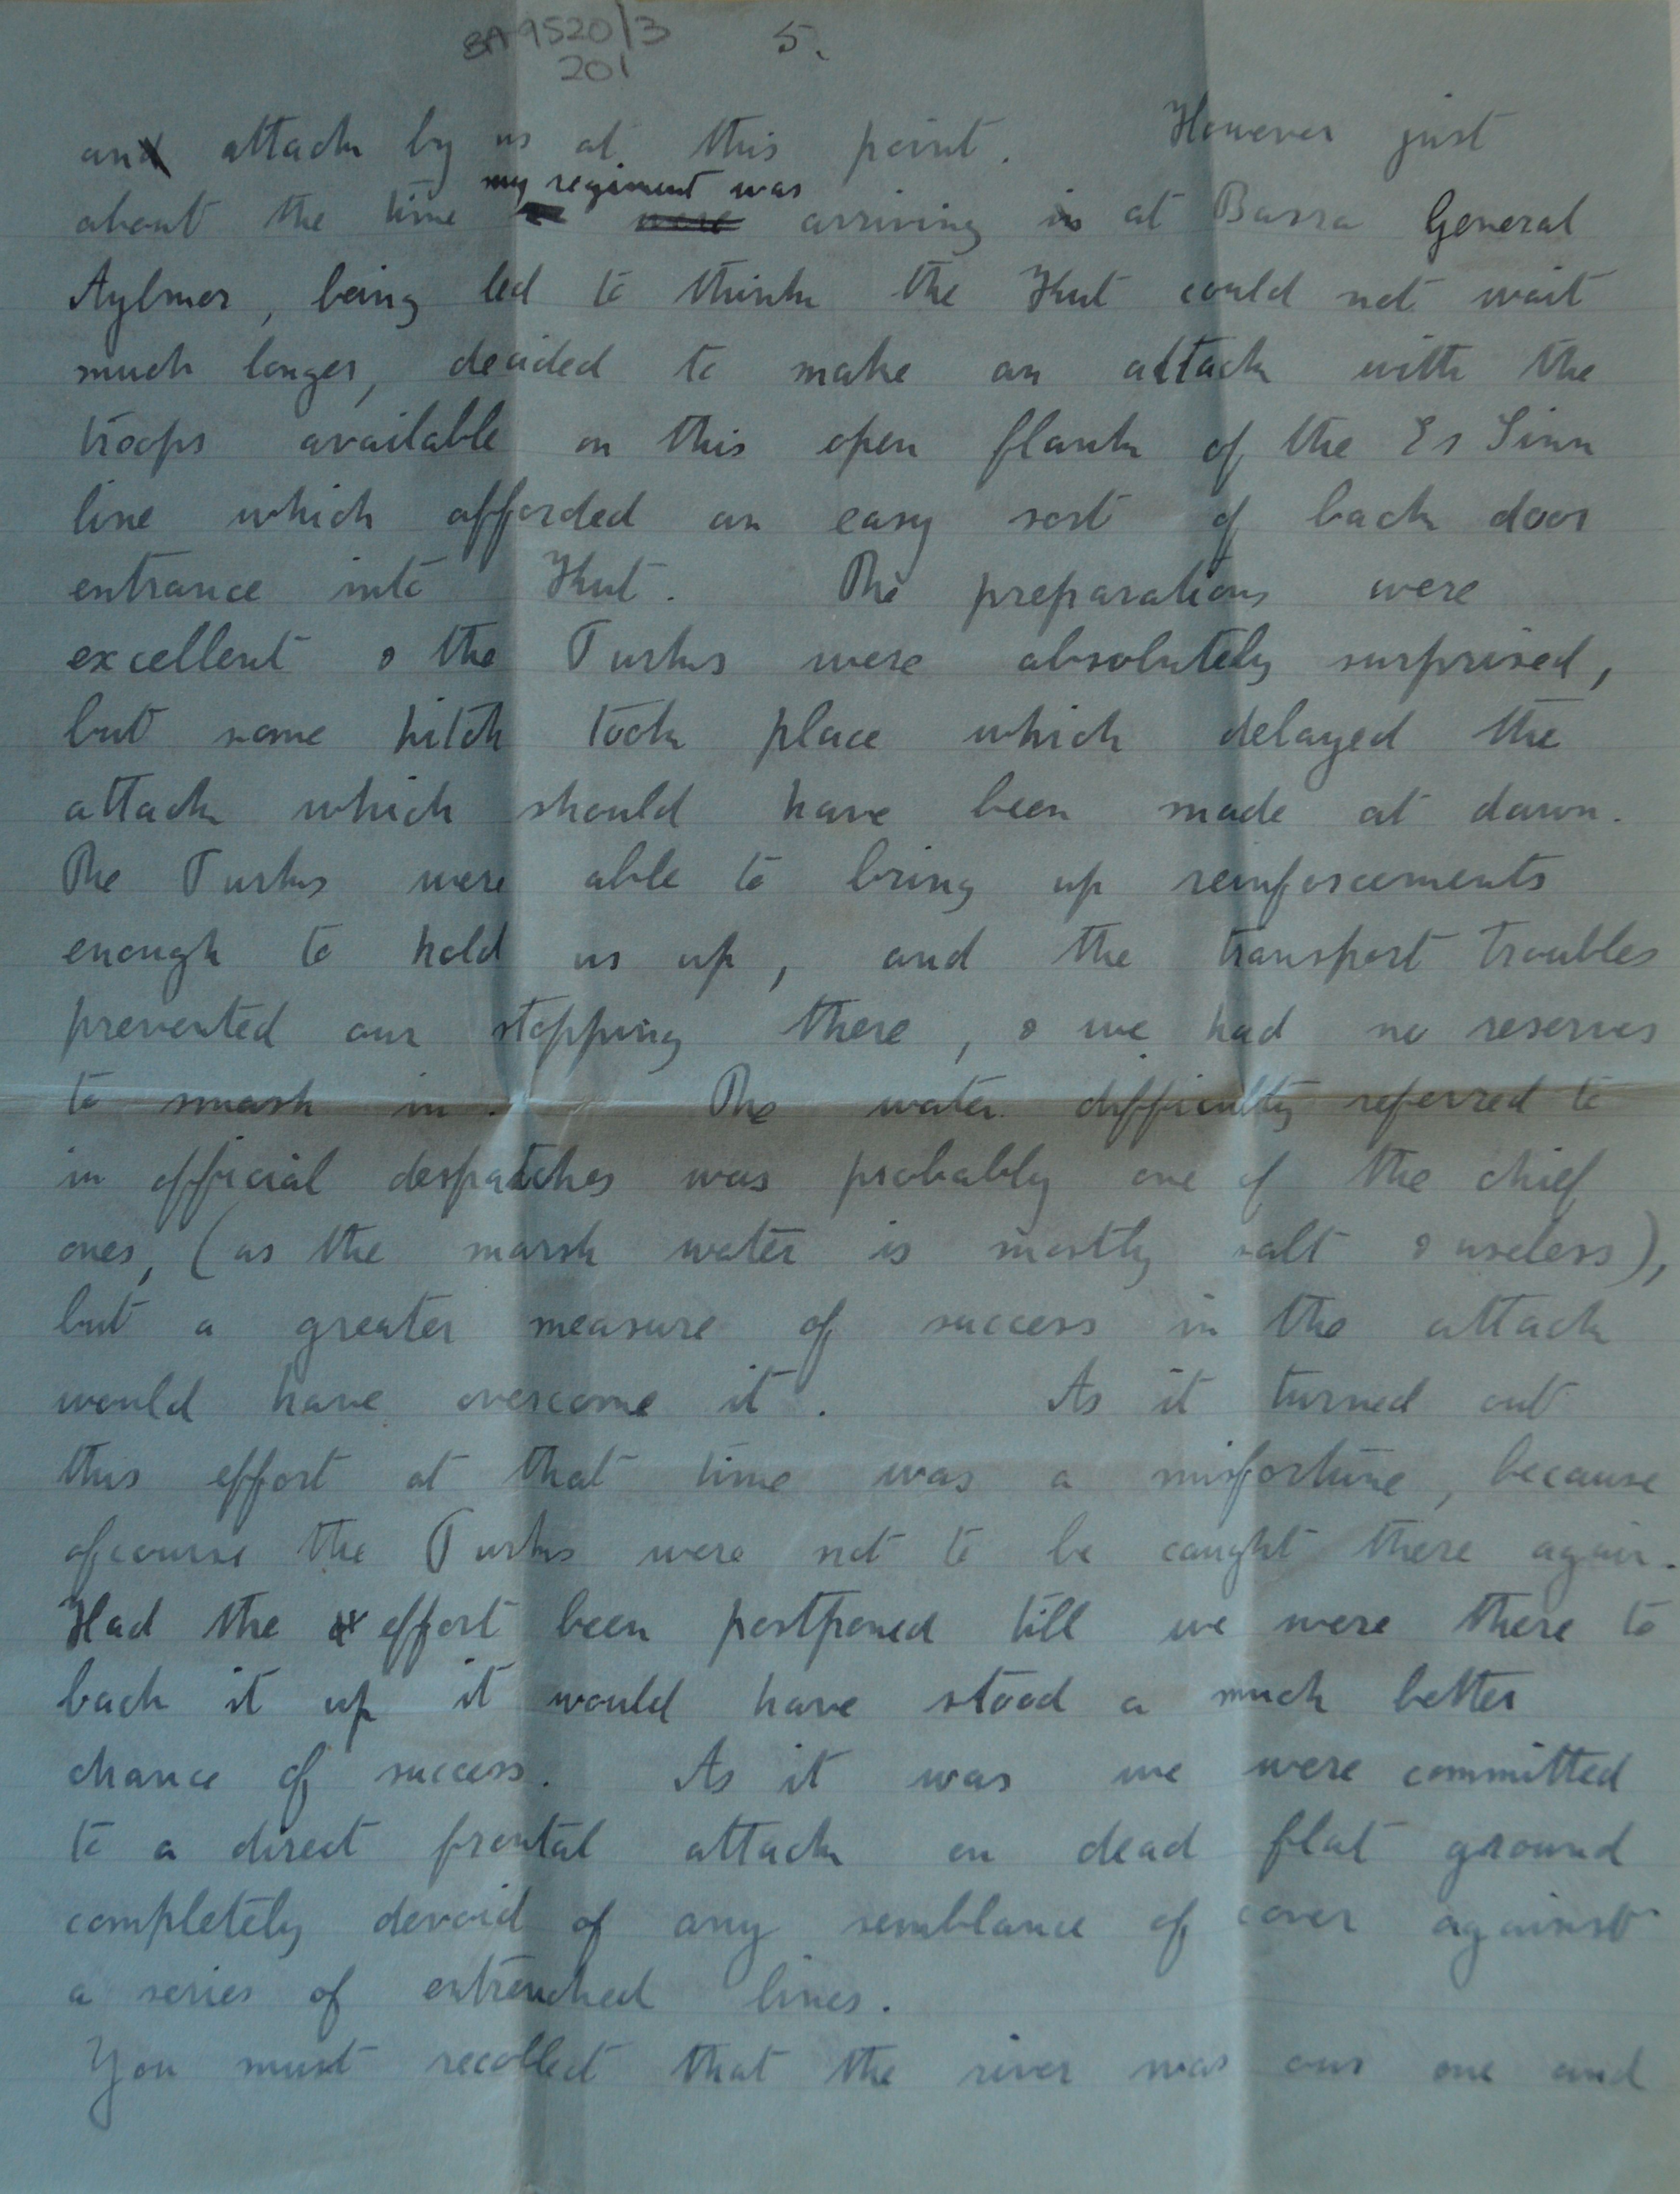 BA9520/3 5.
201
an attack by us at this point. However just
my regiment was
about the time were arriving in at Basra General
Aylmer, being led to think the Kut could not wait
much longer, decided to make an attack with the
troops available on this open flank of the Es Sinn
line which afforded an easy sort of back door
entrance into Kut. The preparations were
excellent & the Turks were absolutely surprised,
but some hitch took place which delayed the
attack which should have been made at dawn.
The Turks were able to bring up reinforcements
enough to hold us up, and the transport troubles
prevented our stopping there, & we had no reserves
to smash in. The water difficulty referred to
in official despatches was probably one of the chief
ones, (as the marsh water is mostly salt & useless),
but a greater measure of success in the attack
would have overcome it. As it turned out
this effort at that time was a misfortune, because
ofcourse the Turks were not to be caught there again.
Had the effort been postponed till we were there to
back it up it would have stood a much better
chance of success. As it was we were committed
to a direct frontal attack on dead flat ground
completely devoid of any semblance of cover against
a series of entrenched lines.
You must recollect that the river was our one and